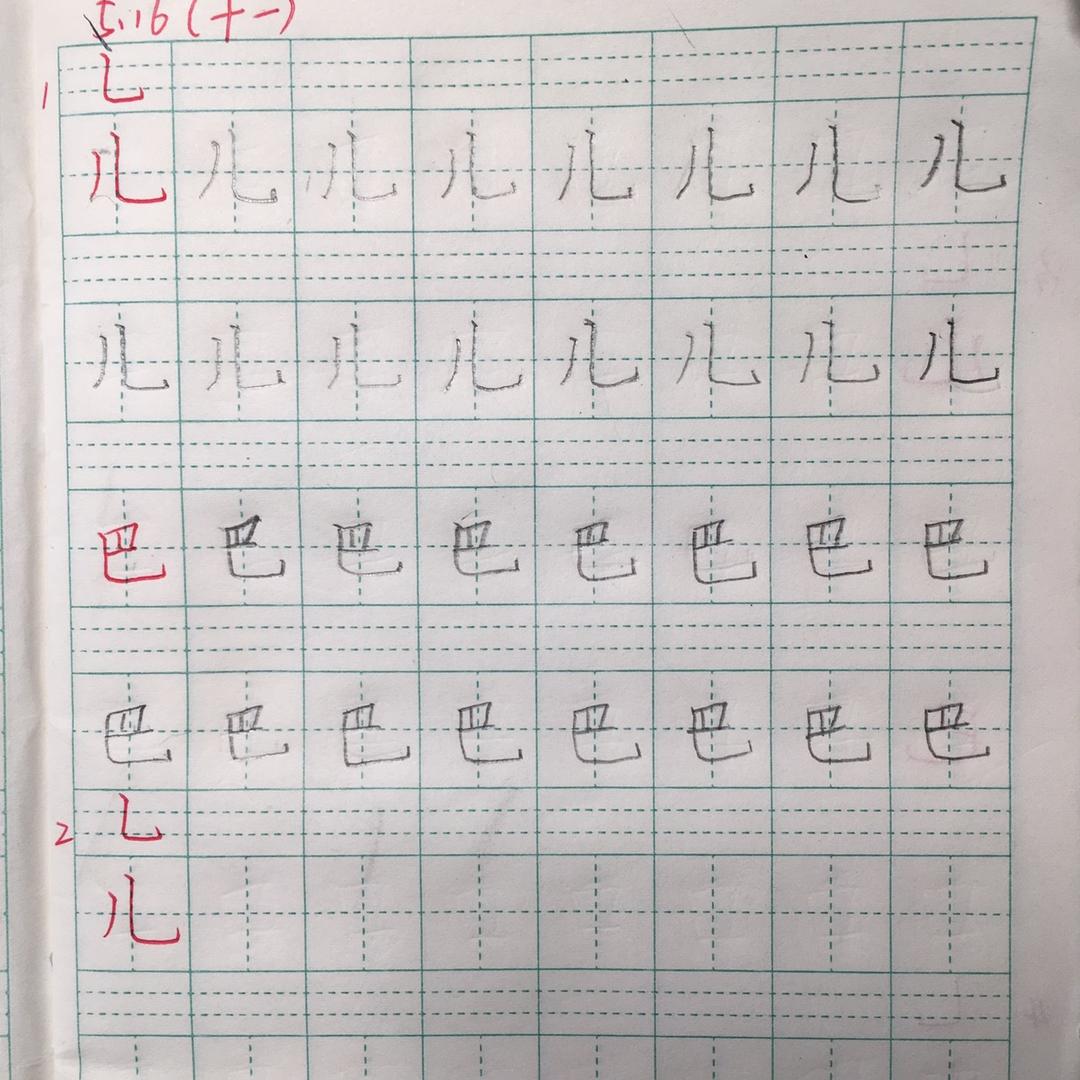 5.16(十一)
1 乚
儿 儿 儿 儿 儿 儿 儿 儿
儿 儿 儿 儿 儿 儿 儿 儿
巴 巴 巴 巴 巴 巴 巴 巴
巴 巴 巴 巴 巴 巴 巴 巴
2 乚
儿